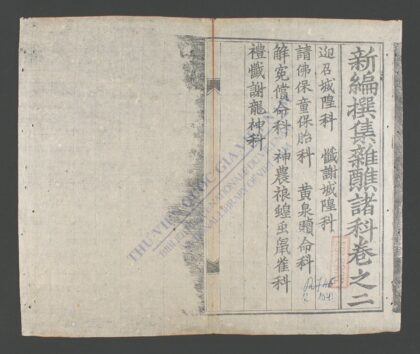 新編撰集雜醮諸科卷之二
迎召城隍科 懺謝城隍科
請佛保童保胎科 黃泉贖命科
解冤償命科 神農禳蝗虫鼠雀科
禮懺謝龍神科
THƯ VIỆN QUỐC GIA